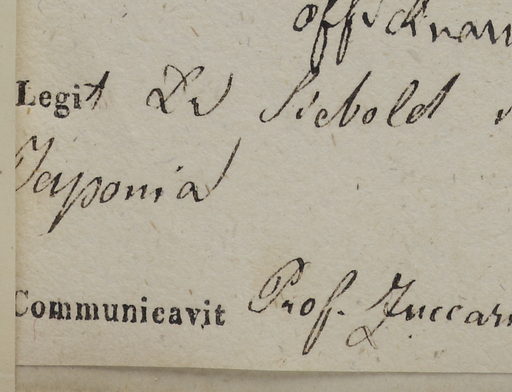 Legit Dr Siebold
Japonia
Communicavit Prof. Zuccari